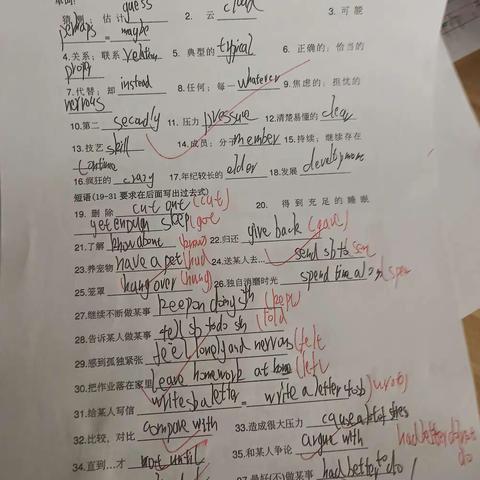 猜测；估计 guess 2. 云 cloud 3. 可能
perhaps = maybe
4.关系；联系 relation 5. 典型的 typical 6. 正确的；恰当的
proper
7.代替；却 instead 8.任何；每一 whatever 9.焦虑的；担忧的
nervous
10.第二 secondly 11. 压力 pressure 12.清楚易懂的 clear
13.技艺 skill 14.成员；分子 member 15.持续；继续存在
continue
16.疯狂的 crazy 17.年纪较长的 elder 18.发展
短语(19-31 要求在后面写出过去式)
19. 删除 cut out (cut) 20. 得到充足的睡眠
get enough sleep (got
21.了解 know about (knew) 22.归还 give back (gave)
23.养宠物 have a pet (had 24.送某人去... send sb to sen
25.笼罩 hang over (hung) 26.独自消磨时光 spend time al
27.继续不断做某事 keep on doing sth (kept)
28.告诉某人做某事 tell sb to do sth (told
29.感到孤独紧张 feel lonely and nervous (felt
30.把作业落在家里 leave homework at home (left
31.给某人写信 write sb a letter = write a letter to sb
32.比较，对比 compare with 33.造成很大压力 cause a lot of stress
34.直到...才 not until 35.和某人争论 argue with
had better do not
do
37.最好(不)做某事 had better to do